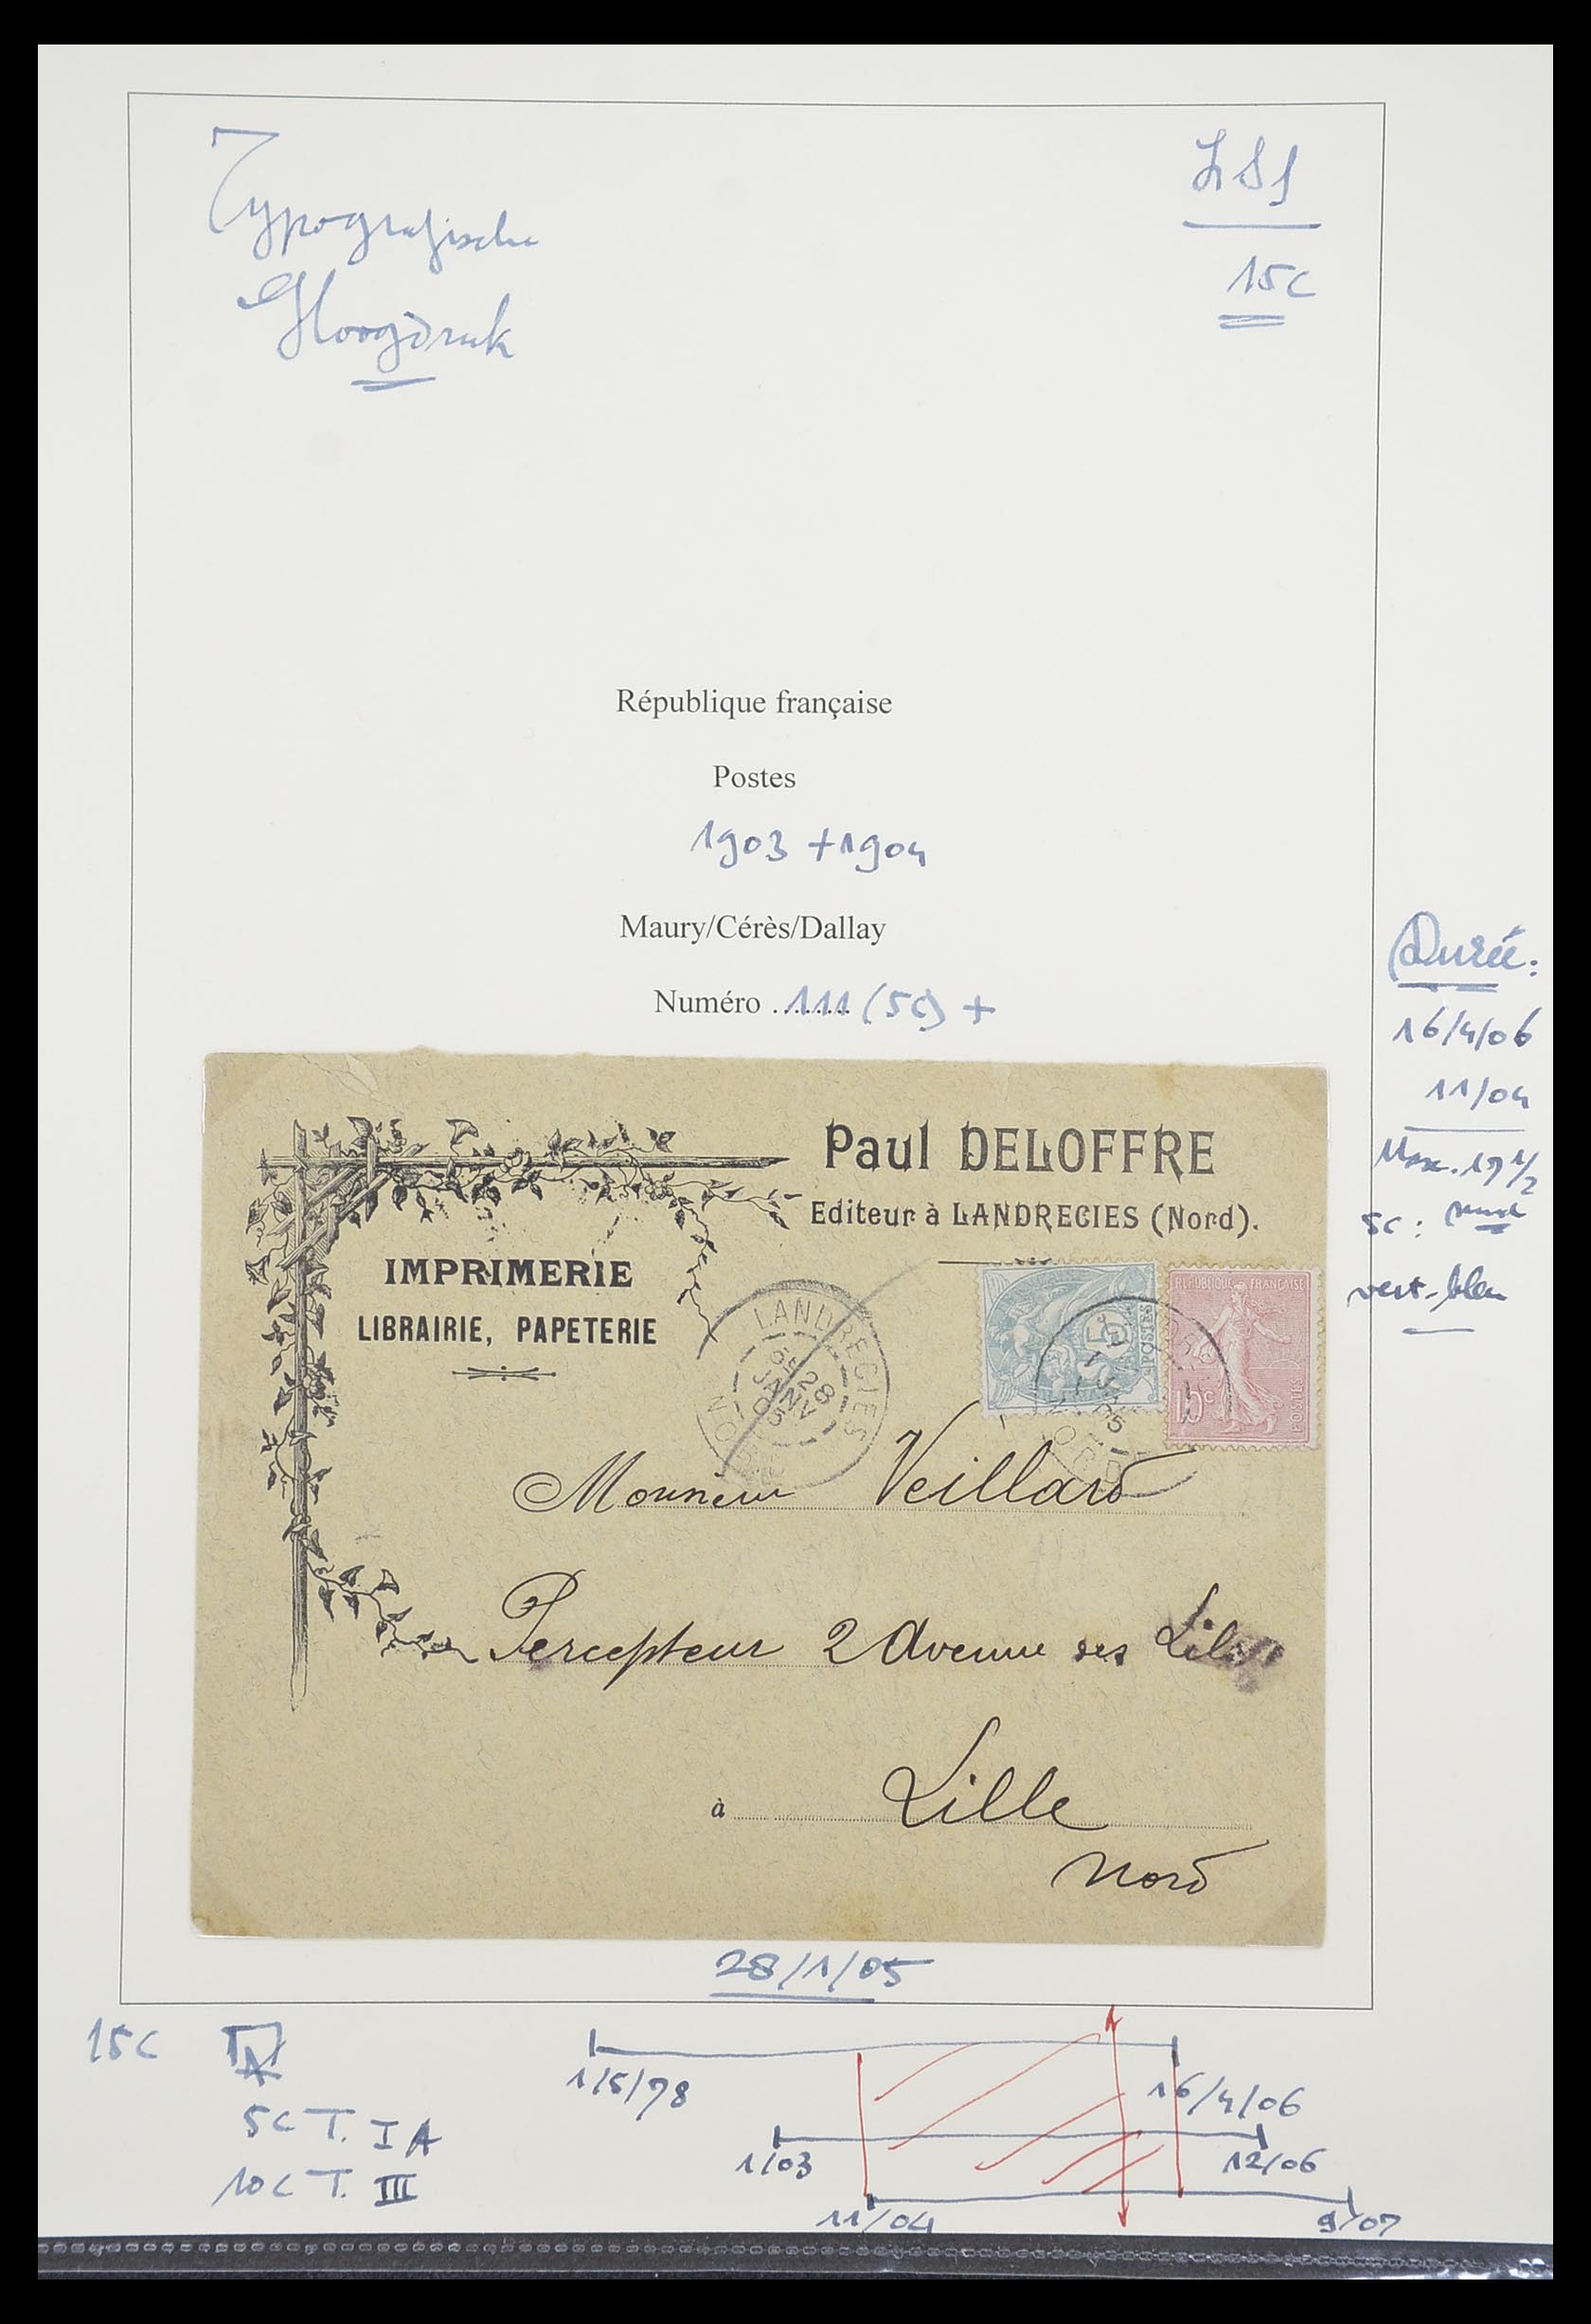 Typografische
Hoogdruk
LSI
15c
République française
Postes
1903 + 1904
Maury/Cérès/Dallay
Numéro ..111 (5c) +
Durée:
16/4/06
11/04
Max. 17 1/2
5c:
vert-bleu
Paul DELOFFRE
Editeur à LANDRECIES (Nord).
IMPRIMERIE
LIBRAIRIE, PAPETERIE
LANDRECIES
28
JANV
05
NORD
POSTES
5
REPUBLIQUE FRANÇAISE
10c
POSTES
Monsieur Veillard
Percepteur 2 Avenue des
à Lille
Nord
28/1/05
15c
5c T. IA
10c T. III
1/5/78
16/4/06
1/03
12/06
11/04
9/07